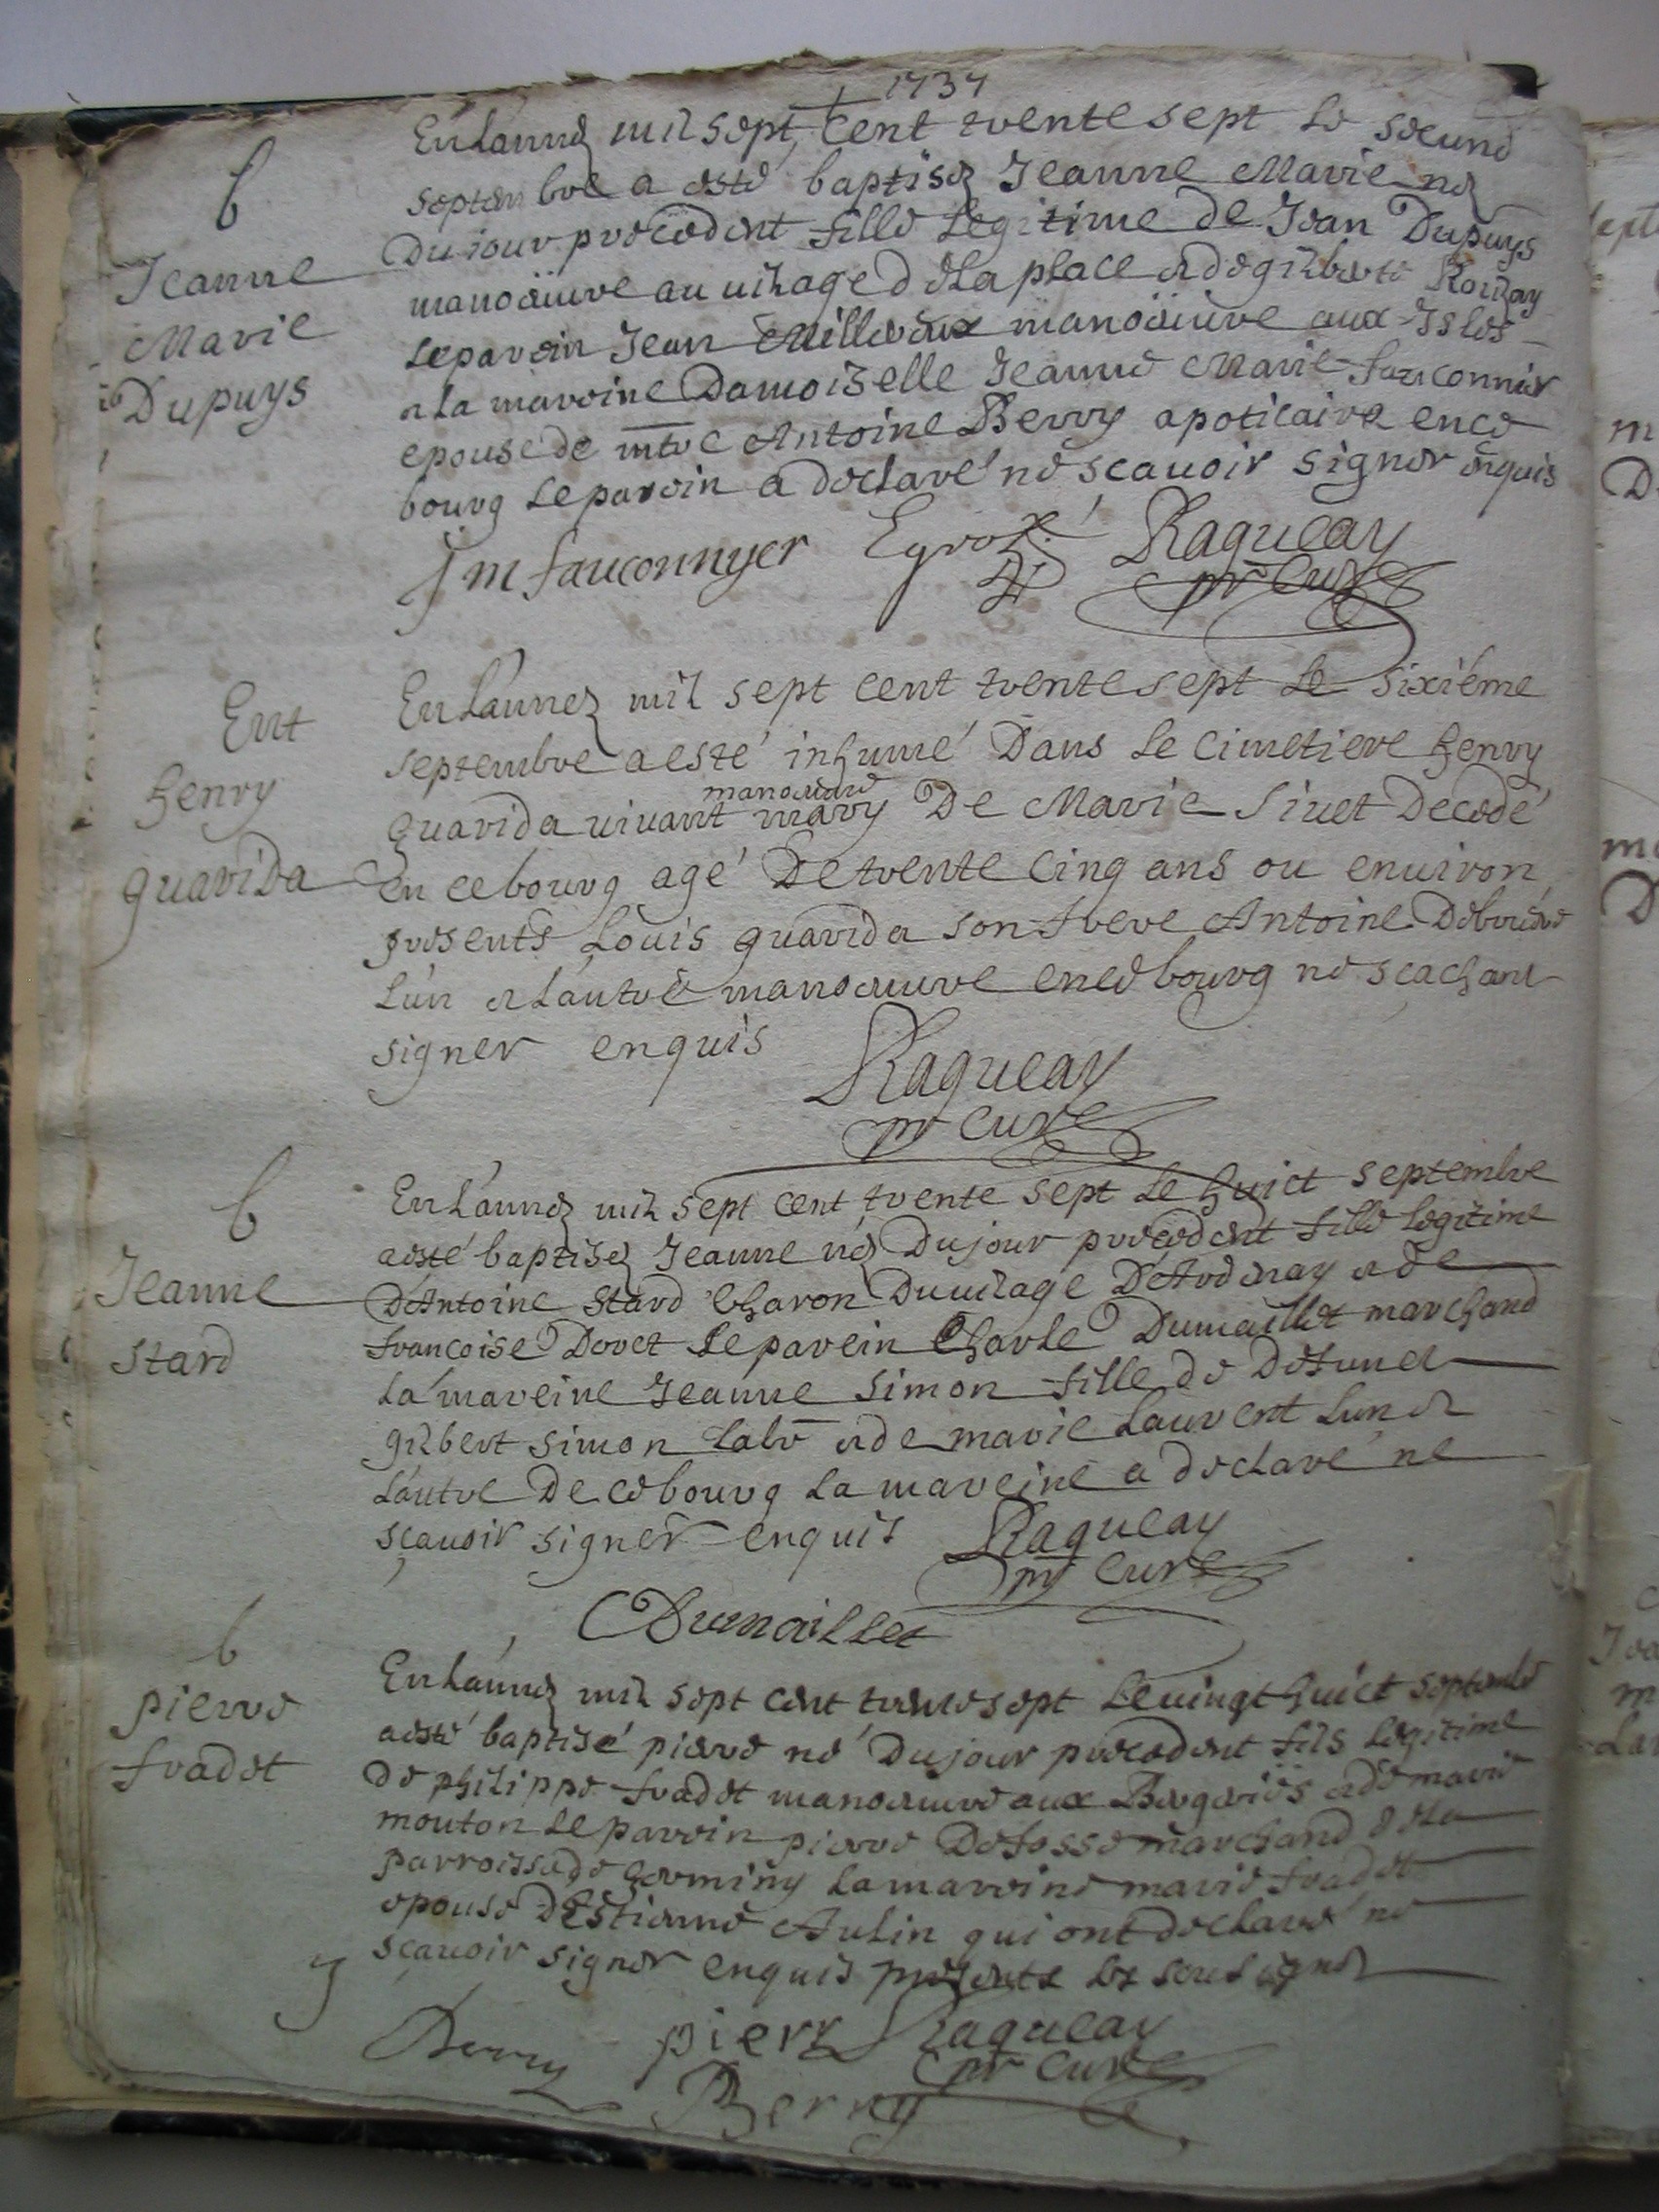 1737
b
Jeanne
Marie
Dupuys
En Lannee mil sept cent trente sept Le second
septembre a esté baptisee Jeanne Marie nee
Du jour precedent fille Legitime de Jean Dupuys
manoeuvre au vilage de la place et de gilberte
Le parein Jean manoeuvre aux Isles
et La mareine Damoiselle Jeanne Marie fauconnier
epouse de mtre Antoine Berry apoticaire en ce
bourg Le parein a declaré ne scauoir signer enquis
J m fauconnyer Raqueay
pr Curé
Ent
henry
quarida
En Lannee mil sept cent trente sept Le sixiéme
septembre a esté inhumé Dans Le cimetiere henry
manoeuvre
quarida vivant mary De Marie Sivet Decedé
En ce bourg agé De trente cinq ans ou environ
presents Louis quarida son frere Antoine
L'un et Lautre manoeuvre en ce bourg ne scachant
signer enquis Raqueay
pr Curé
b
Jeanne
Stard
En Lannee mil sept cent trente sept Le huict septembre
a esté baptisee Jeanne née Du jour precedent fille Legitime
D'Antoine Stard Charon Du vilage D'Ardenay et de
francoise Doret Le parein Charle Dumaillet marchand
La mareine Jeanne Simon fille de Defunct
gilbert Simon Labr et de marie Laurent Lun et
Lautre De ce bourg La mareine a declaré ne
scauoir signer enquis Raqueay
pr Curé
CDumaillet
b
pierre
fradet
En Lannee mil sept cent trente sept Le vingt huict septembre
a esté baptisé pierre né Du jour precedent fils Legitime
de philippe fradet manoeuvre aux Bergeries et de marie
mouton Le parein pierre Defosse marchand de la
parroisse de germiny La mareine marie fradet
epouse D'Estienne Aulin qui ont declaré ne
scavoir signer enquis presents Les soussignez
Berry pierre Raqueay
Berry pr Curé